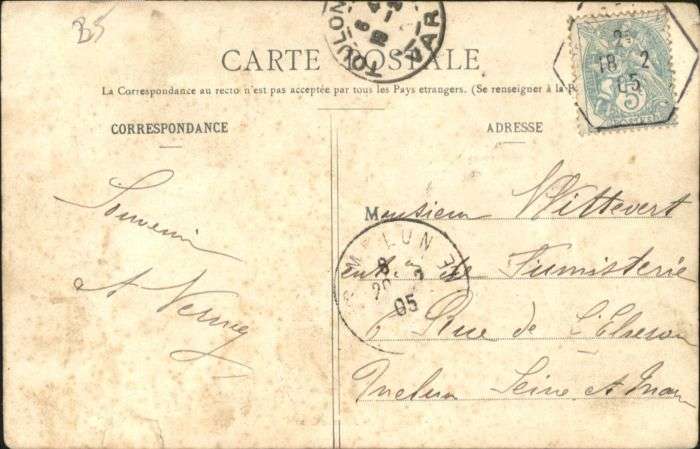 B5
TOULON VAR
CARTE POSTALE
La Correspondance au recto n'est pas acceptée par tous les Pays etrangers. (Se renseigner à la
18 2
05
5
CORRESPONDANCE
ADRESSE
Souvenir
et
Monsieur Wittevert
MELUN
8
20 2
05
de Fumisterie
6 Rue de
Melun Seine et Marne